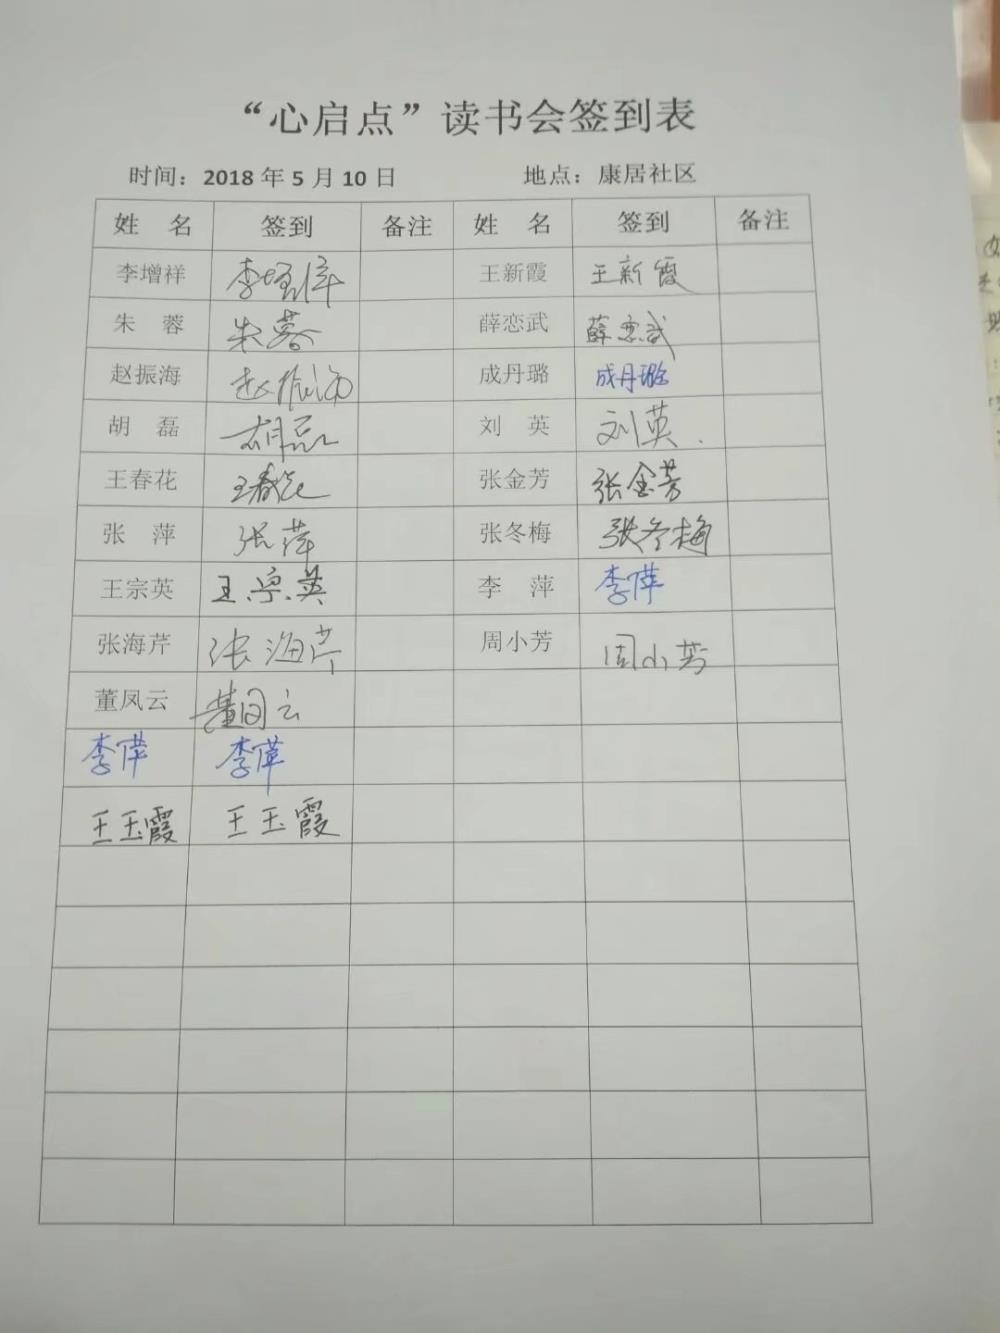 “心启点”读书会签到表
时间：2018 年 5 月 10 日 地点：康居社区
姓 名 签到 备注 姓 名 签到 备注
李增祥 李增祥 王新霞 王新霞
朱 蓉 朱蓉 薛恋武 薛恋武
赵振海 赵振海 成丹璐 成丹璐
胡 磊 胡磊 刘 英 刘英.
王春花 王春花 张金芳 张金芳
张 萍 张萍 张冬梅 张冬梅
王宗英 王宗英 李 萍 李萍
张海芹 张海芹 周小芳 周小芳
董凤云 董凤云
李萍 李萍
王玉霞 王玉霞